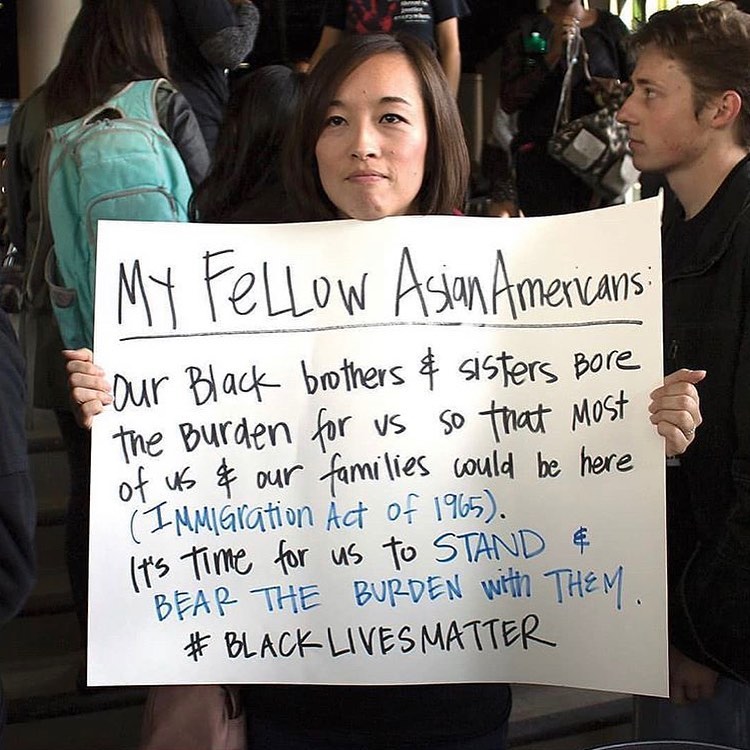 My FeLLow Asian Americans:
Our Black brothers & sisters Bore
the Burden for us so that Most
of us & our families could be here
(IMMIGration Act of 1965).
It's time for us to STAND &
BEAR THE BURDEN with THEM.
# BLACK LIVES MATTER